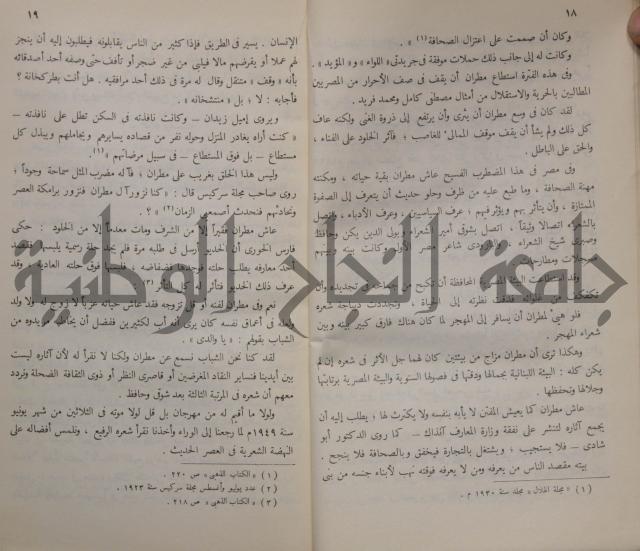 ١٨
وكان أن صممت على اعتزال الصحافة(١) » .
وكانت له إلى جانب ذلك حملات موفقة فى جريدتى « اللواء » و « المؤيد » .
وفى هذه الفترة استطاع مطران أن يقف فى صف الأحرار من المصريين
المطالبين بالحرية والاستقلال من أمثال مصطفى كامل ومحمد فريد .
لقد كان فى وسع مطران أن يثرى وأن يرتفع إلى ذروة الغنى ولكنه عاف
كل ذلك ولم يشأ أن يقف موقف الممالئ للغاصب ؛ فآثر الخلود على الفناء ،
والحق على الباطل .
وفى مصر فى هذا المضطرب الفسيح عاش مطران بقية حياته ، ومكنته
مهنة الصحافة ، وما طبع عليه من ظرف وحلو حديث أن يتعرف إلى الصفوة
الممتازة ، وأن يتأثر بهم ويؤثر فيهم ؛ عرف السياسيين ، وعرف الأدباء ، واتصل
بالشعراء اتصالا وثيقاً ، اتصل بشوقى أمير الشعراء وبولى الدين يكن وحافظ
وصبرى شيخ الشعراء . والبارودى شاعر مصر الأول وكانت بينه وبينهم
مساجلات ومطارحات
وقد استطاعت البيئة المصرية المحافظة أن تكبح من جماحه فى تجديده وأن
فلو هيئ لمطران أن يسافر إلى المهجر لما كان هناك فارق كبير بينه وبين
شعراء المهجر .
وهكذا ترى أن مطران مزاج من بيئتين كان لهما جل الأثر فى شعره إن لم
يكن كله : البيئة اللبنانية بجمالها ودقتها فى فصولها السنوية والبيئة المصرية برتابتها
وجلالها وتحفظها .
عاش مطران كما يعيش المفتن لا يأبه بنفسه ولا يكترث لها ؛ يطلب إليه أن
يجمع آثاره لتنشر على نفقة وزارة المعارف آنذاك – كما روى الدكتور أبو
شادى – فلا يستجيب ؛ ويشتغل بالتجارة فيخفق وبالصحافة فلا ينجح .
بيته مقصد الناس من يعرفه ومن لا يعرفه فوقته نهب لأبناء جنسه من بنى
(١) « مجلة الهلال » مجلد سنة ١٩٣٠ م .
١٩
الإنسان . يسير فى الطريق فإذا كثير من الناس يقابلونه فيطلبون إليه أن ينجز
لهم عملا أو يقرضهم مالا فيلبى من غير ضجر أو تأفف حتى وصفه أحد أصدقائه
بأنه « وقف » متنقل وقال له مرة فى ذلك أحد مرافقيه . هل أنت بطركخانة ؟
فأجابه : لا ؛ بل « منتشخانه » .
ويروى إميل زيدان – وكانت نافذته فى السكن تطل على نافذته –
« كنت أراه يغادر المنزل وحوله نفر من قصاده يسايرهم ويجاملهم ويبذل كل
مستطاع – بل فوق المستطاع – فى سبيل مرضاتهم »(١).
وليس هذا الخلق بغريب على مطران ؛ فآله مضرب المثل سماحة وجوداً ؛
روى صاحب مجلة سركيس قال : « كنا نزور آل مطران فنزور برامكة العصر
ونحادثهم فنحدث أصمعى الزمان(٢) » ؟ .
عاش مطران فقيراً إلا من الشرف ومات معدماً إلا من الخلود : حكى
فارس الخورى أن الخديو أرسل فى طلبه مرة فلم يجد حلة رسمية يلبسها فقصد
أحد معارفه يطلب حلته فوجدها فضفاضه ، فلبسها فوق حلته العادية ، وقد
عرف ذلك الخديو فتأثر له كل التأثر(٣)
نعم وفى مطران لفنه أو قل تزوجه فقد عاش حياته عزباً لا زوج له ولا ولد
ولعله فى أعماق نفسه كان يرى أنه أب لكثيرين ففضل أن يخاطبه مريدوه من
الشباب بقولهم : « يا والدى » .
لقد كنا نحن الشباب نسمع عن مطران ولكنا لا نقرأ له لأن آثاره ليست
بين أيدينا فنساير النقاد المغرضين أو قاصرى النظر أو ذوى الثقافة الضحلة ونردد
معهم أن شعره فى المرتبة الثالثة بعد شوقى وحافظ .
ولولا ما أقيم له من مهرجان بل قل لولا موته فى الثلاثين من شهر يونيو
سنة ١٩٤٩م لما رجعنا إلى الوراء وأخذنا نقرأ شعره الرفيع ، ونلمس أفضاله على
النهضة الشعرية فى العصر الحديث .
(١) « الكتاب الذهبى » ص ٢٢٠ .
(٢) عدد يوليو وأغسطس مجلة سركيس سنة ١٩٢٣ .
(٣) « الكتاب الذهبى » ص ٢١٨ .
جامعة النجاح الوطنية